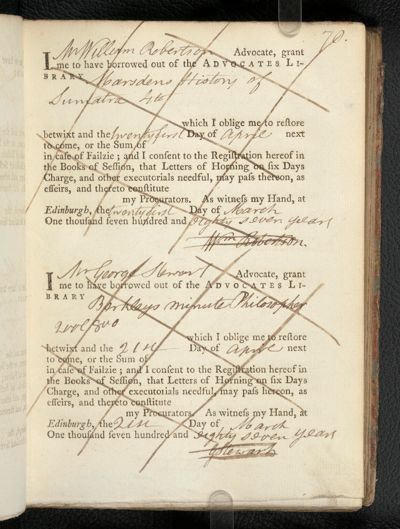 70.
I Mr William Robertson Advocate, grant
me to have borrowed out of the ADVOCATES LI-
BRARY Marsdens History of
Sumatra 4to
which I oblige me to reſtore
betwixt and the twenty first Day of April next
to come, or the Sum of
in caſe of Failzie ; and I conſent to the Regiſtration hereof in
the Books of Seſſion, that Letters of Horning on ſix Days
Charge, and other executorials needful, may paſs thereon, as
effeirs, and thereto conſtitute
my Procurators. As witneſs my Hand, at
Edinburgh, the twenty first Day of March
One thouſand ſeven hundred and eighty seven years
Wm Robertson.
I Mr George Stewart Advocate, grant
me to have borrowed out of the ADVOCATES LI-
BRARY Barklays minute Philosopher
2 vols 8vo
which I oblige me to reſtore
betwixt and the 21st Day of April next
to come, or the Sum of
in caſe of Failzie ; and I conſent to the Regiſtration hereof in
the Books of Seſſion, that Letters of Horning on ſix Days
Charge, and other executorials needful, may paſs hereon, as
effeirs, and thereto conſtitute
my Procurators. As witneſs my Hand, at
Edinburgh, the 21st Day of March
One thouſand ſeven hundred and eighty seven years
GStewart